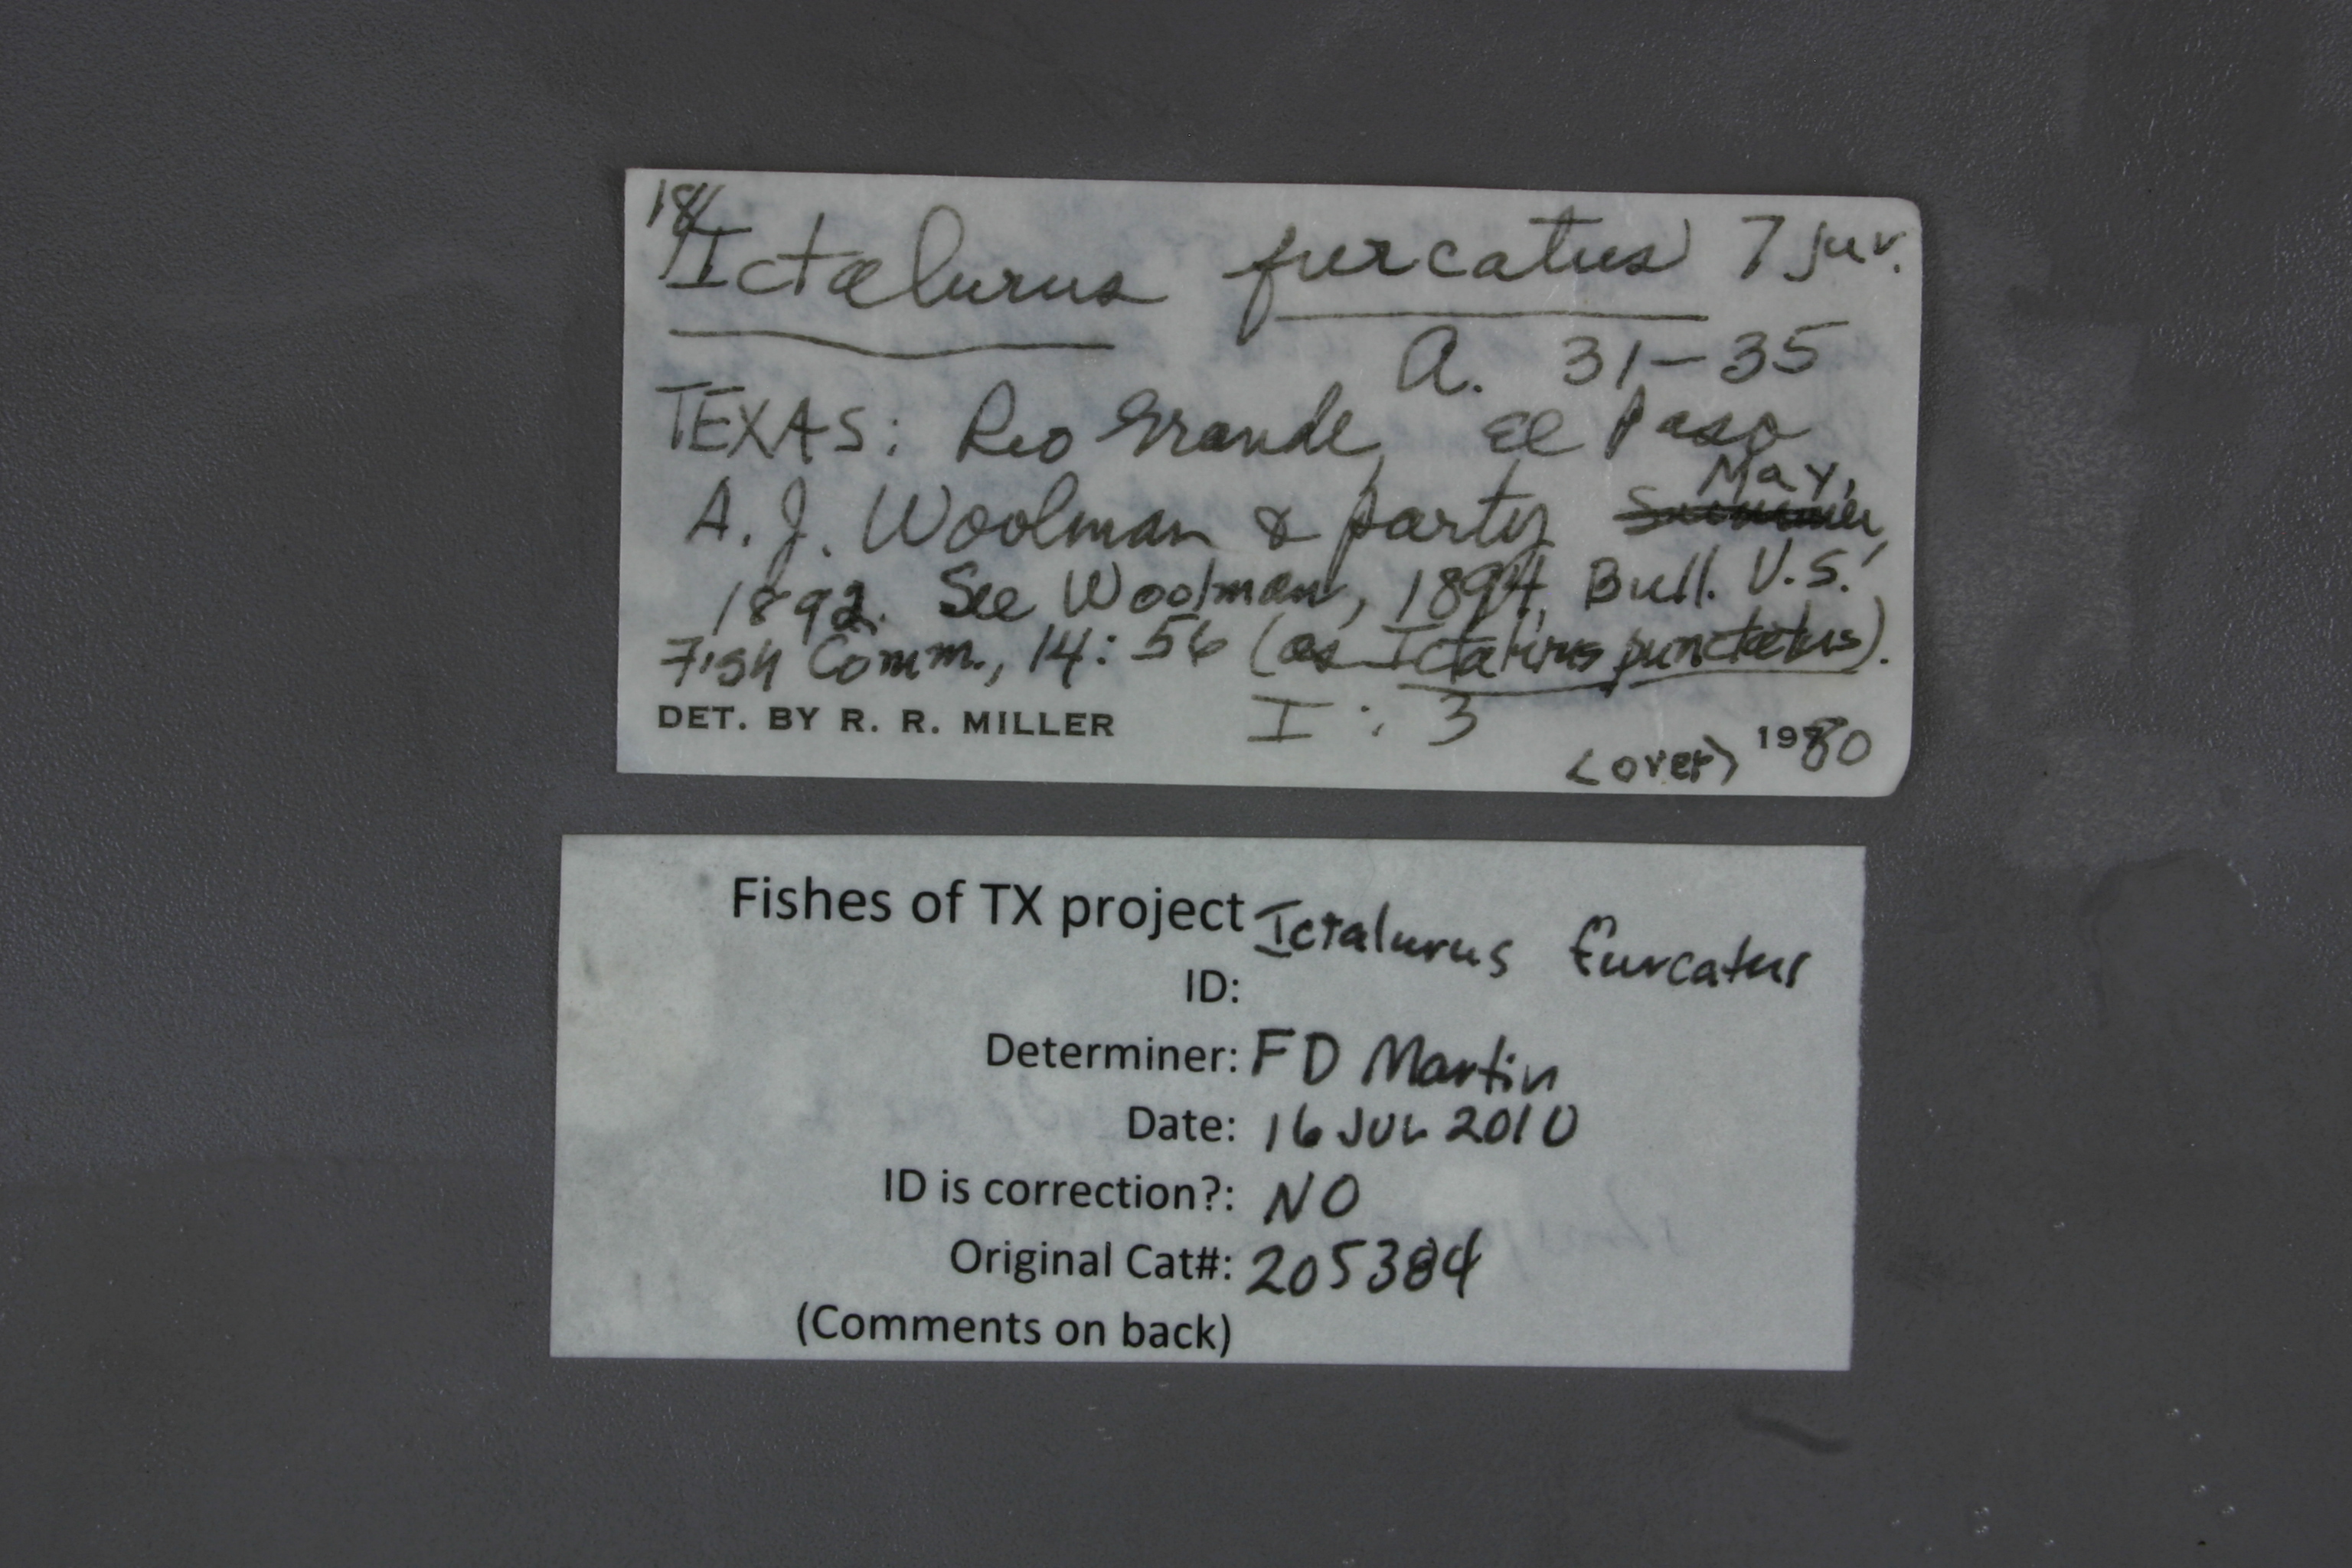 Ictalurus furcatus 7 juv.
A. 31-35
TEXAS: Rio Grande, El Paso
May,
A. J. Woolman & party Summer,
1892. See Woolman, 1894, Bull. U.S.
Fish Comm., 14: 56 (as Ictalurus punctatus).
DET. BY R. R. MILLER I: 3
<over> 1980
Fishes of TX project Ictalurus furcatus
ID:
Determiner: FD Martin
Date: 16 JUL 2010
ID is correction?: NO
Original Cat#: 205384
(Comments on back)